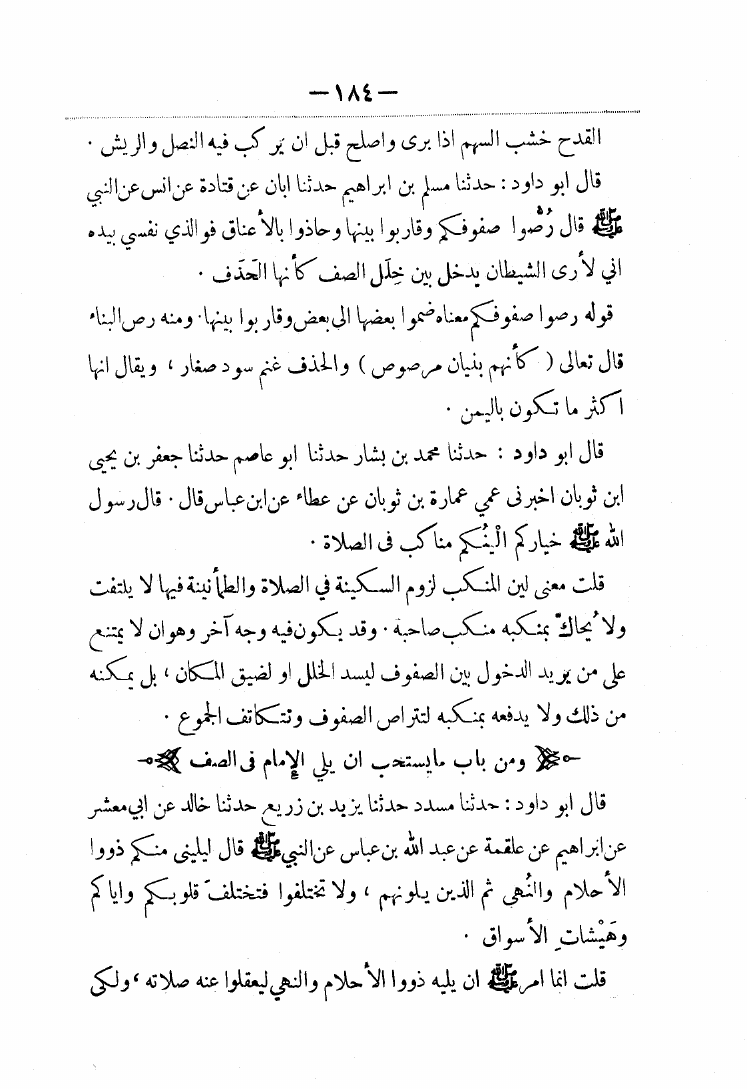 — ١٨٤ —
القدح خشب السهم اذا برى واصلح قبل ان يركب فيه النصل والريش .
قال ابو داود : حدثنا مسلم بن ابراهيم حدثنا ابان عن قتادة عن انس عن النبي
ﷺ قال رُصُّوا صفوفكم وقاربوا بينها وحاذوا بالأعناق فوالذي نفسي بيده
اني لأرى الشيطان يدخل بين خِلَل الصف كأنها الحَذَف .
قوله رصوا صفوفكم معناه ضموا بعضها الى بعض وقاربوا بينها . ومنه رص البناء
قال تعالى ( كأنهم بنيان مرصوص ) والحذف غنم سود صغار ، ويقال انها
اكثر ما تكون باليمن .
قال ابو داود : حدثنا محمد بن بشار حدثنا ابو عاصم حدثنا جعفر بن يحيى
ابن ثوبان اخبرنى عمي عمارة بن ثوبان عن عطاء عن ابن عباس قال . قال رسول
الله ﷺ خياركم الْينُكم مناكب فى الصلاة .
قلت معنى لين المنكب لزوم السكينة في الصلاة والطمأنينة فيها لا يلتفت
ولا يُحاكّ بمنكبه منكب صاحبه . وقد يكون فيه وجه آخر وهو ان لا يمتنع
على من يريد الدخول بين الصفوف ليسد الخلل او لضيق المكان ، بل يمكنه
من ذلك ولا يدفعه بمنكبه لتتراص الصفوف وتتكاتف الجموع .
ومن باب مايستحب ان يلي الإمام فى الصف
قال ابو داود : حدثنا مسدد حدثنا يزيد بن زريع حدثنا خالد عن ابي معشر
عن ابراهيم عن علقمة عن عبد الله بن عباس عن النبي ﷺ قال ليلينى منكم ذووا
الأحلام والنُهى ثم الذين يلونهم ، ولا تختلفوا فتختلفَ قلوبكم واياكم
وهَيْشاتِ الأسواق .
قلت انما امر ﷺ ان يليه ذووا الأحلام والنهي ليعقلوا عنه صلاته ، ولكى